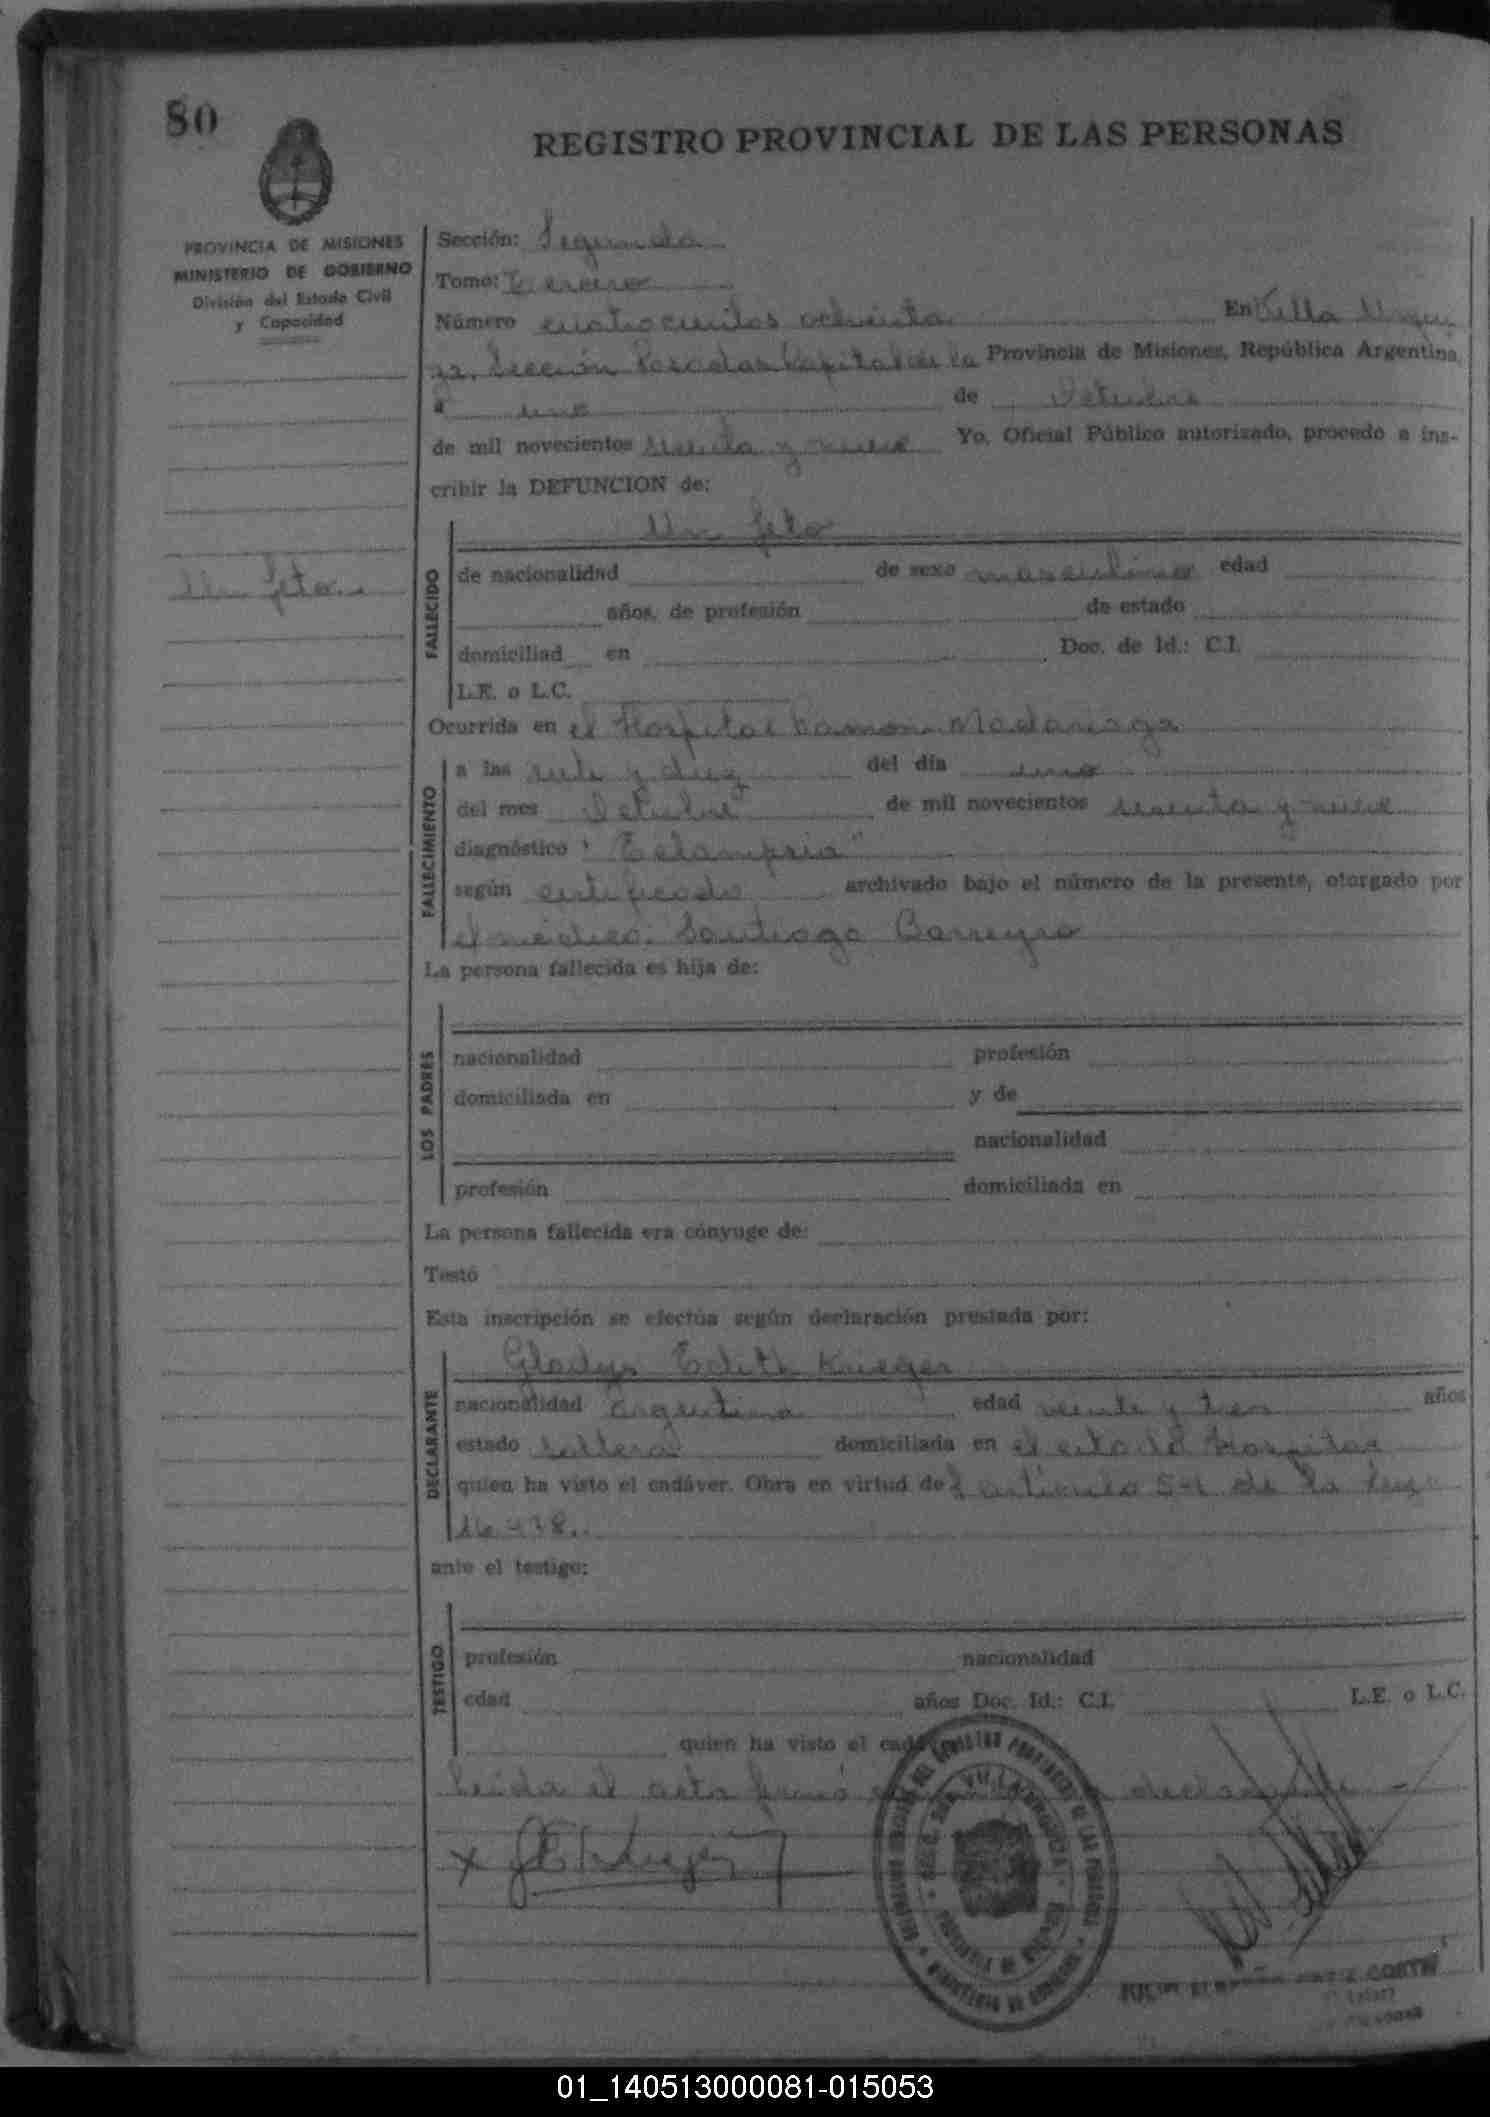 80
REGISTRO PROVINCIAL DE LAS PERSONAS
PROVINCIA DE MISIONES
MINISTERIO DE GOBIERNO
División del Estado Civil
y Capacidad
Sección: Segunda
Tomo: Tercero
Número cuatrocientos ochenta En Villa Urqui
za, Sección Posadas Capital de la Provincia de Misiones, República Argentina,
a uno de Octubre
de mil novecientos sesenta y nueve Yo, Oficial Público autorizado, procedo a ins-
cribir la DEFUNCION de:
Un feto
Un feto.
FALLECIDO
de nacionalidad de sexo masculino edad
años, de profesión de estado
domiciliad en Doc. de Id.: C.I.
L.E. o L.C.
Ocurrida en el Hospital Ramon Madariaga
FALLECIMIENTO
a las siete y diez del día uno
del mes Octubre de mil novecientos sesenta y nueve
diagnóstico "Eclampsia"
según certificado archivado bajo el número de la presente, otorgado por
el médico: Santiago Barreyro
La persona fallecida es hija de:
LOS PADRES
nacionalidad profesión
domiciliada en y de
nacionalidad
profesión domiciliada en
La persona fallecida era cónyuge de:
Testó
Esta inscripción se efectúa según declaración prestada por:
DECLARANTE
Gladys Edith Krieger
nacionalidad argentina edad veinte y tres años
estado soltera domiciliada en el citado Hospital
quien ha visto el cadáver. Obra en virtud del artículo 54 de la Ley
16.478.
ante el testigo:
TESTIGO
profesión nacionalidad
edad años Doc. Id.: C.I. L.E. o L.C.
quien ha visto el cadáver
Leída el acta firmó declarante
01_140513000081-015053